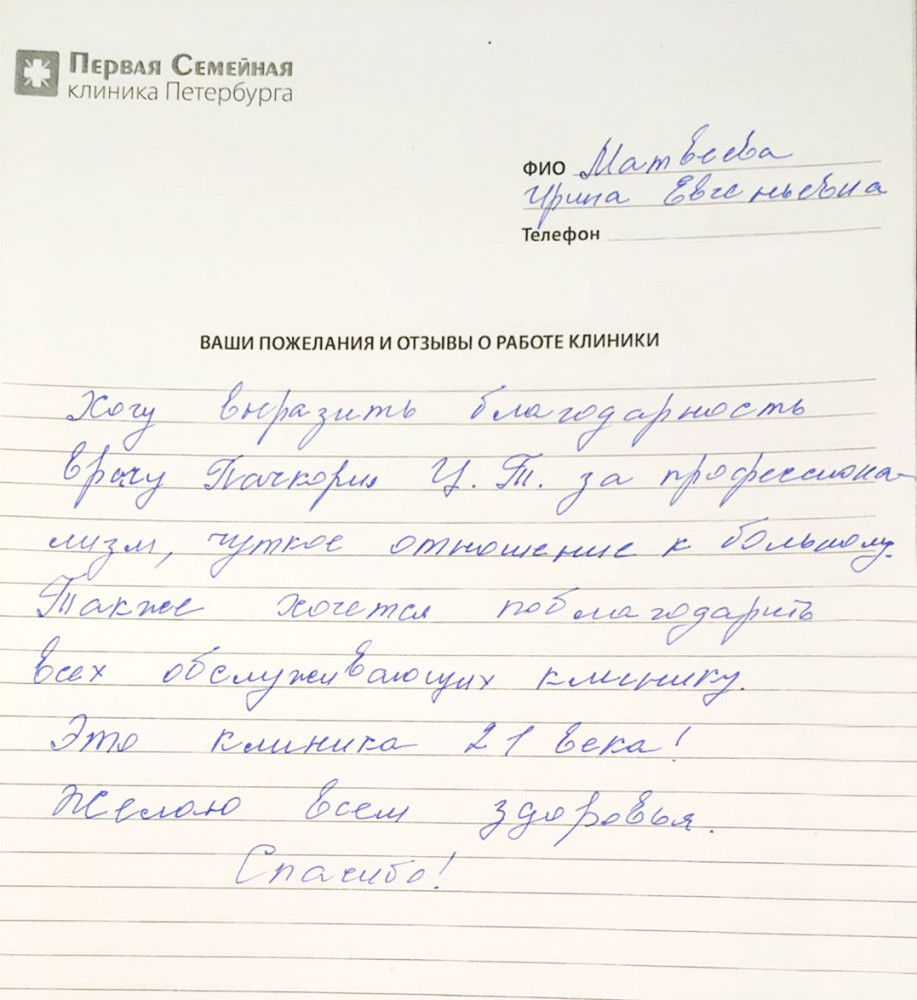 Первая Семейная
клиника Петербурга
ФИО Матвеева
Ирина Евгеньевна
Телефон
ВАШИ ПОЖЕЛАНИЯ И ОТЗЫВЫ О РАБОТЕ КЛИНИКИ
Хочу выразить благодарность
врачу Пачкория Ц. Т. за профессиона-
лизм, чуткое отношение к больному.
Также хочется поблагодарить
всех обслуживающих клинику.
Это клиника 21 века!
Желаю всем здоровья.
Спасибо!